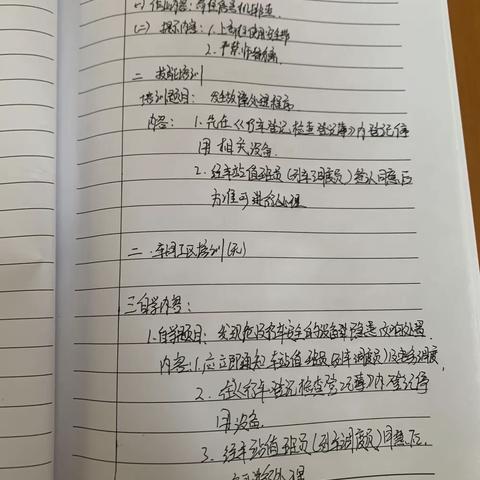 (二) 提示内容: 1. 上部位使用安全带
2. 严禁作
二 技能培训
培训题目: 发生故障处理程序
内容: 1. 先在《行车登记检查登记簿》内登记停
用相关设备.
2. 经车站值班员(列车调度员)签认同意后
方准可进行处理
二. 车间工区培训(无)
三自学内容:
1. 自学题目: 发现危及行车安全的设备隐患
内容: 1. 应立即通知车站值班员(列车调度员)
2. 在《行车登记检查登记簿》内登记停
用设备.
3. 经车站值班员(列车调度员)同意后.